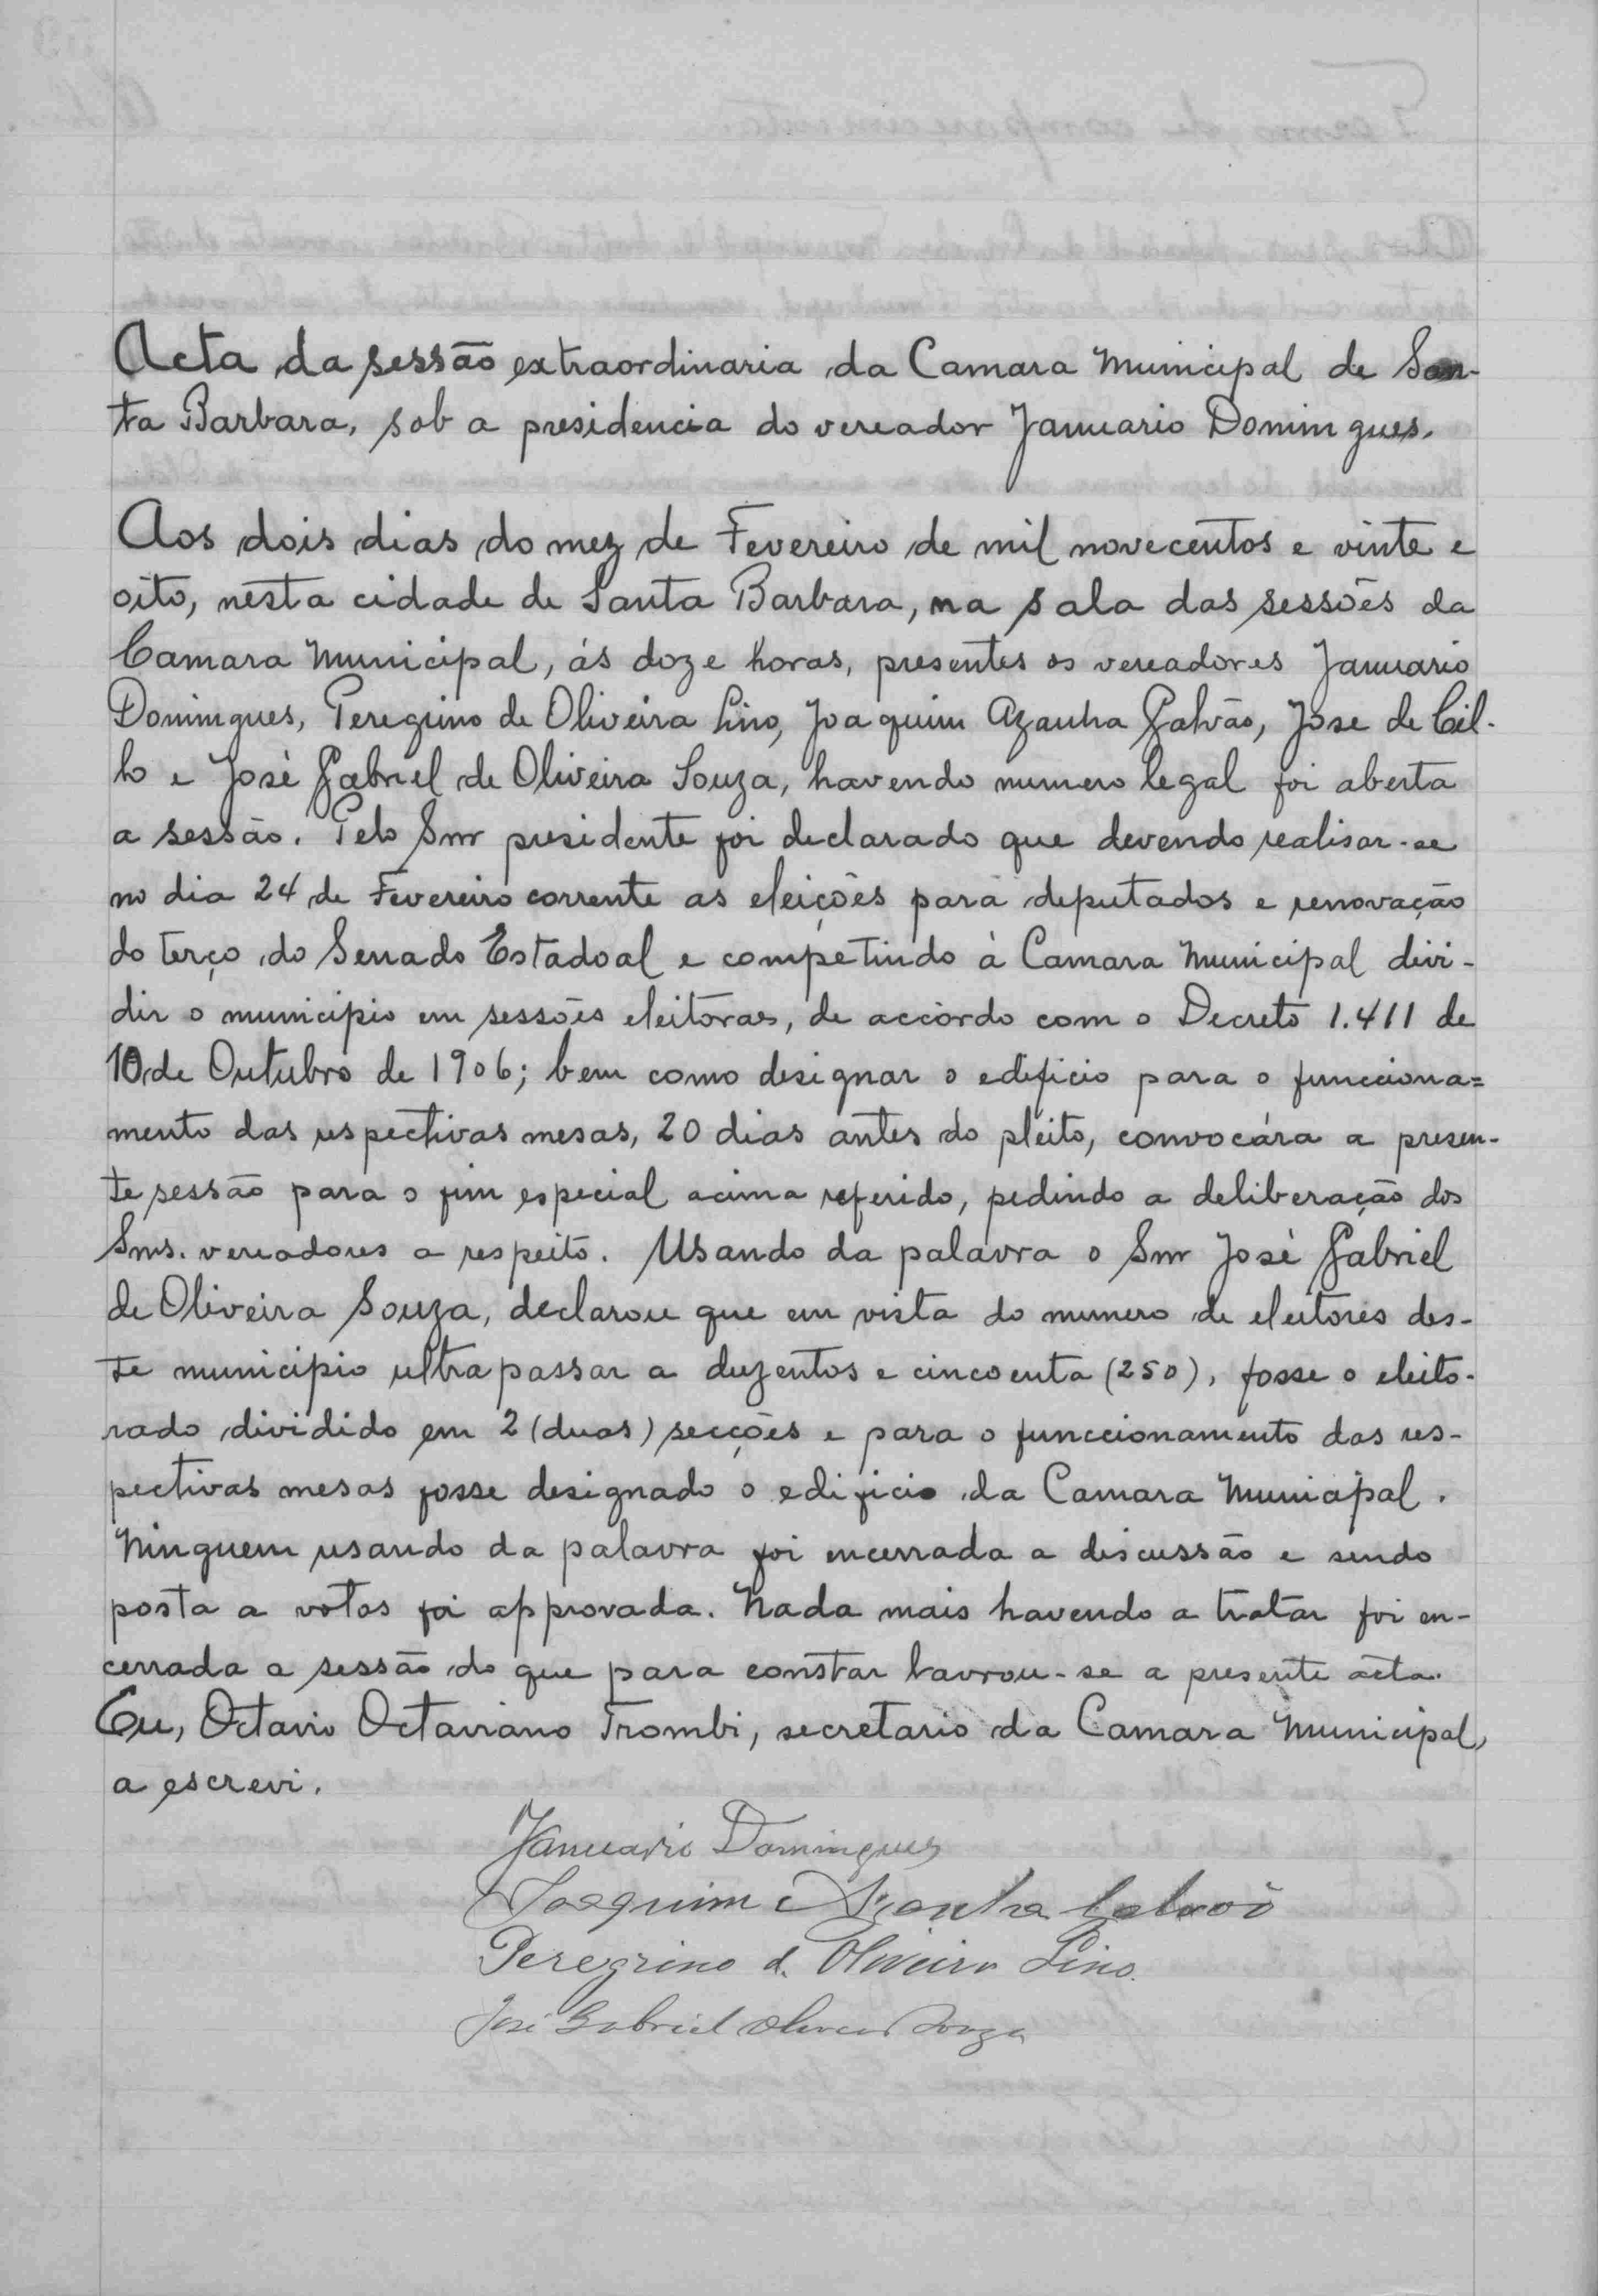 Acta da sessão extraordinaria da Camara Municipal de San-
ta Barbara, sob a presidencia do vereador Januario Domingues.
Aos dois dias do mez de Fevereiro de mil novecentos e vinte e
oito, nesta cidade de Santa Barbara, na sala das sessões da
Camara Municipal, ás doze horas, presentes os vereadores Januario
Domingues, Peregrino de Oliveira Lino, Joaquim Azanha Galvão, José de Cil-
lo e José Gabriel de Oliveira Souza, havendo numero legal foi aberta
a sessão. Pelo Snr presidente foi declarado que devendo realisar-se
no dia 24 de Fevereiro corrente as eleições para deputados e renovação
do terço do Senado Estadoal e competindo à Camara Municipal divi-
dir o municipio em sessões eleitoraes, de accôrdo com o Decreto 1.411 de
10 de Outubro de 1906; bem como designar o edificio para o funcciona=
mento das respectivas mesas, 20 dias antes do pleito, convocára a presen-
te sessão para o fim especial acima referido, pedindo a deliberação dos
Snrs. vereadores a respeito. Usando da palavra o Snr José Gabriel
de Oliveira Souza, declarou que em vista do numero de eleitores des-
te municipio ultrapassar a duzentos e cincoenta (250), fosse o eleito-
rado dividido em 2 (duas) secções e para o funccionamento das res-
pectivas mesas fosse designado o edificio da Camara Municipal.
Ninguem usando da palavra foi encerrada a discussão e sendo
posta a votos foi approvada. Nada mais havendo a tratar foi en-
cerrada a sessão do que para constar lavrou-se a presente acta.
Eu, Octavio Octaviano Trombi, secretario da Camara Municipal,
a escrevi.
Januario Domingues
Joaquim Azanha Galvão
Peregrino d. Oliveira Lino.
José Gabriel Oliveira Souza